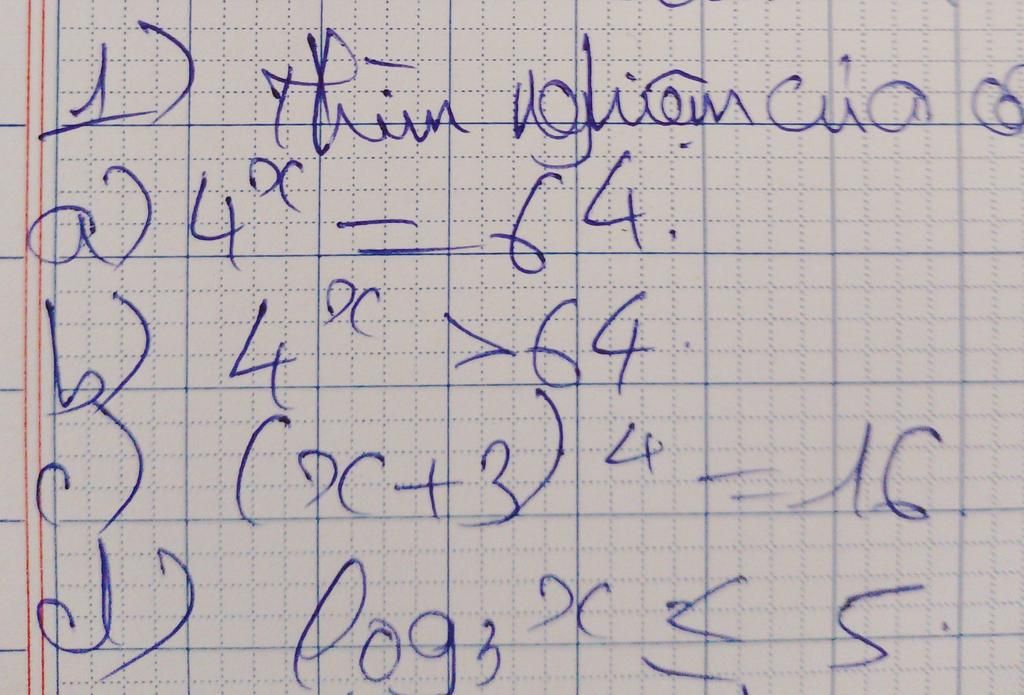 1) Tìm nghiệm của
a) 4^x = 64.
b) 4^x > 64.
c) (x+3)^4 = 16.
d) log₃ x ≤ 5.